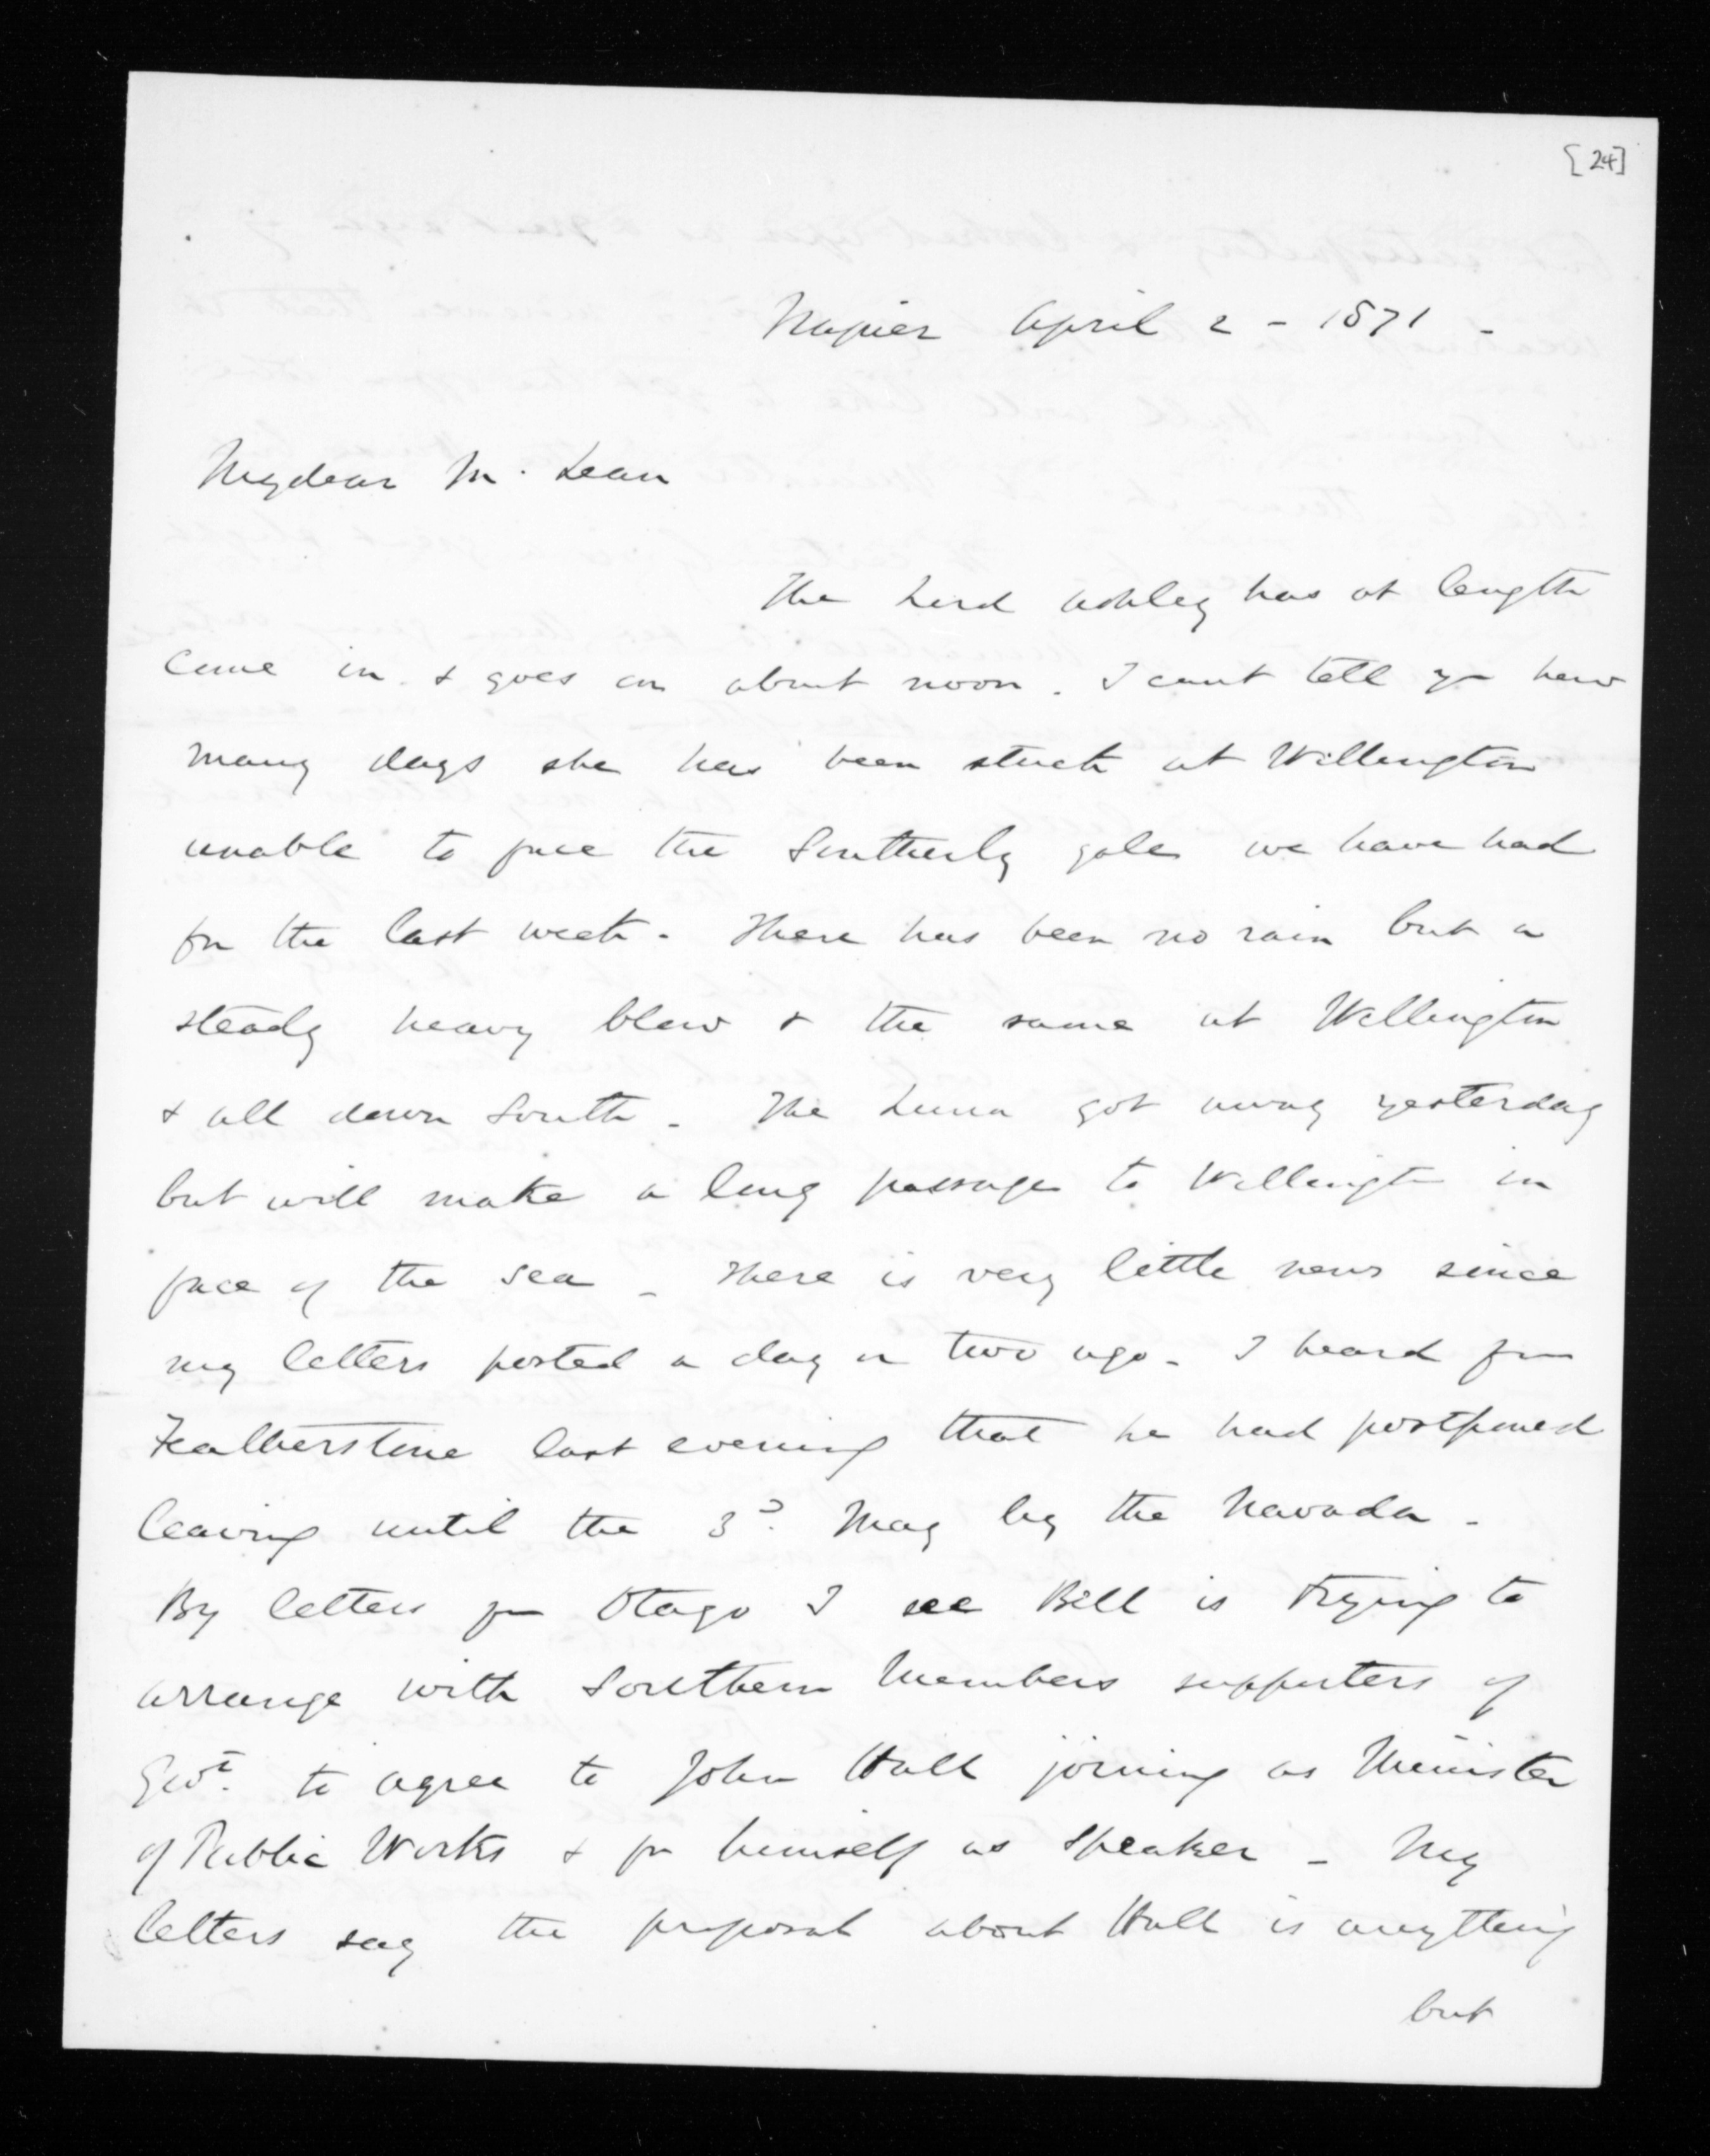 [24]
Napier April 2 - 1871 -
My dear McLean
The Lord Ashley has at length
come in & goes on about noon. I cant tell you how
many days she has been stuck at Wellington
unable to face the Southerly gales we have had
for the last week. There has been no rain but a
steady heavy blow & the same at Wellington
& all down South - The Luna got away yesterday
but will make a long passage to Wellington in
face of the sea - There is very little news since
my letters posted a day or two ago - I heard from
Featherstone last evening that he had postponed
leaving until the 3d. May by the Navada -
By letters from Otago I see Bell is trying to
arrange with Southern Members supporters of
Govt. to agree to John Hall joining as Minister
of Public Works & for himself as Speaker - My
letters say the proposal about Hall is anything
but